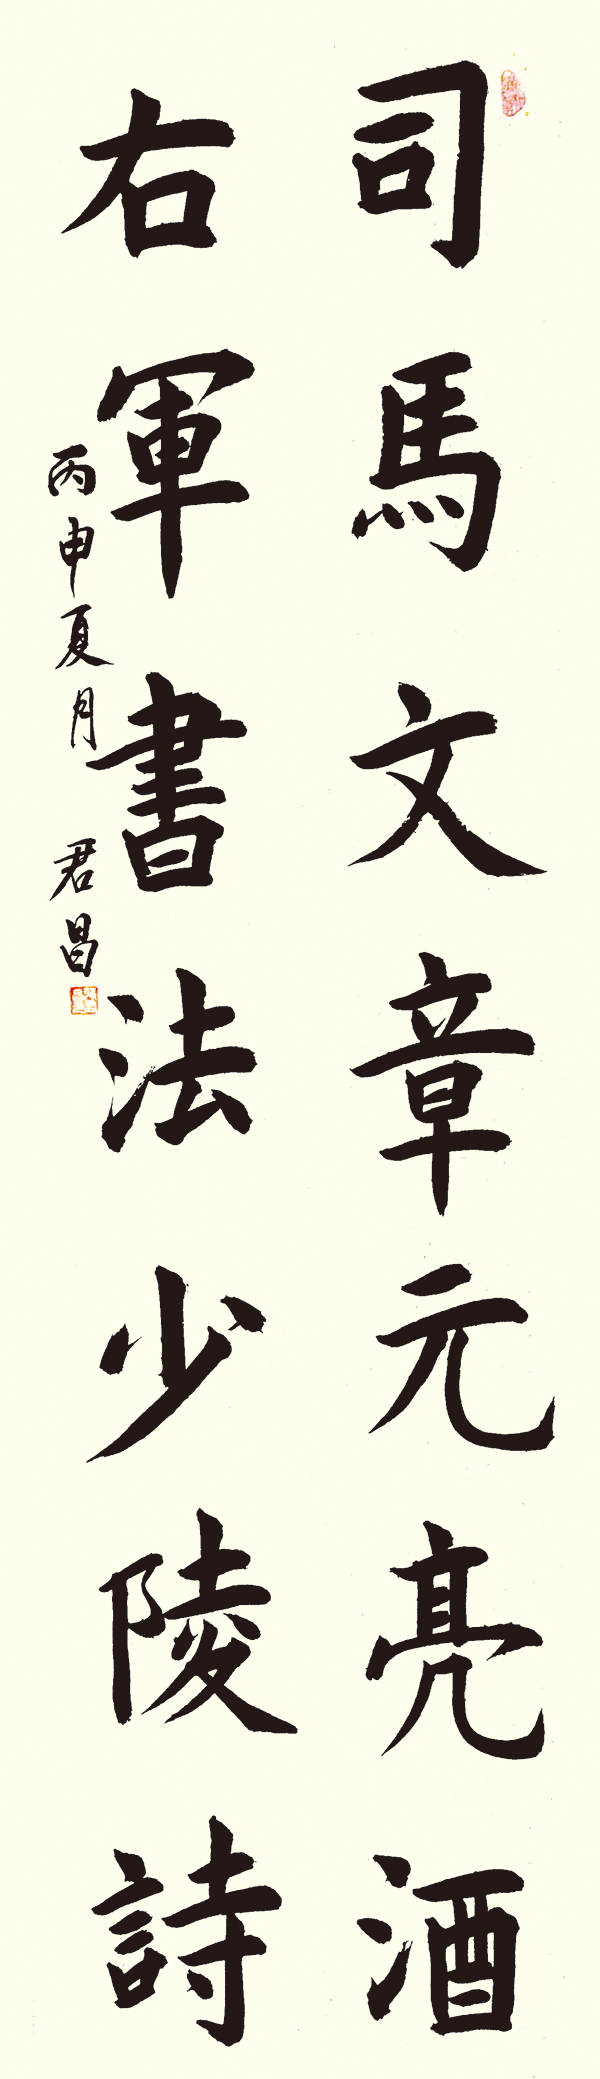 司馬文章元亮酒
右軍書法少陵詩
丙申夏月 君昌